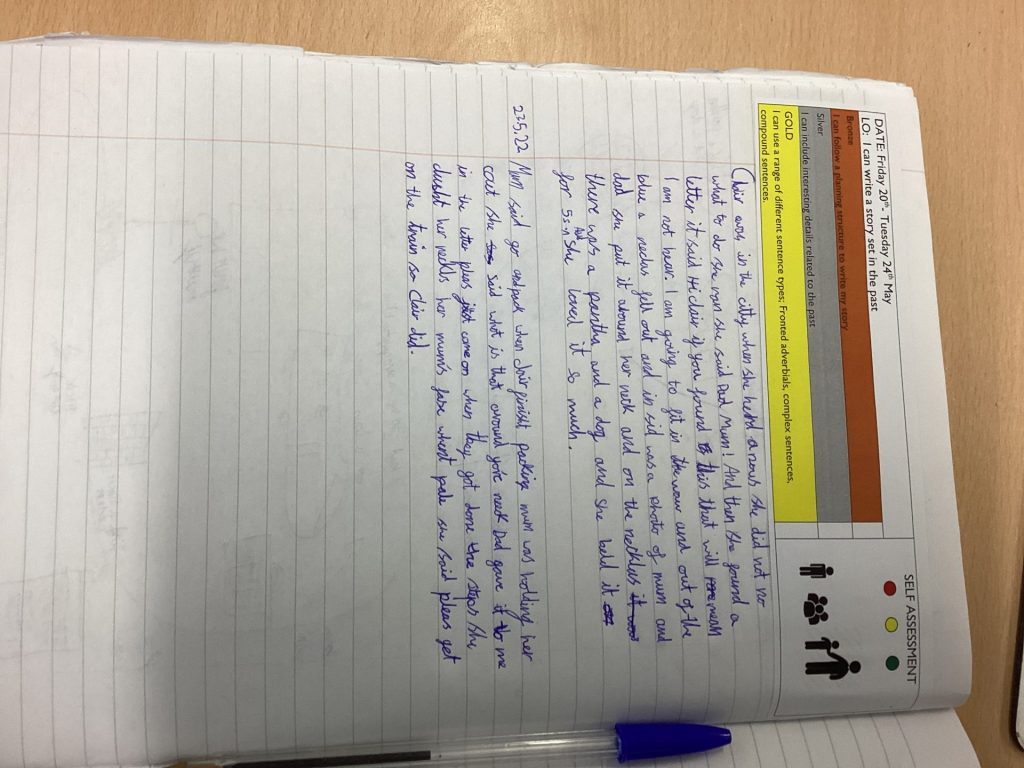 DATE: Friday 20th- Tuesday 24th May
LO: I can write a story set in the past
Bronze
I can follow a planning structure to write my story
Silver
I can include interesting details related to the past
GOLD
I can use a range of different sentence types; Fronted adverbials, complex sentences,
compound sentences.
SELF ASSESSMENT
Clair was in the city when she heard a nous she did not no
what to do she ran she said Dad Mum! And then she found a
letter it said Hi clair if you found this that will mean
I am not hear. I am going to fit in the waw and out of the
blue a neclus fell out and in sid was a photo of mum and
dad she put it around her neck and on the necklus
there was a pantha and a dog and she held it
for 5s And she loved it so much.
23.5.22 Mum said go and pack when clair finish packing mum was holding her
coat she said what is that around your neck Dad gave it to me
in the letter pleas come on when they got done the steps she
her necklus her mum's fabe whent pale she said pleas get
on the train so clair did.